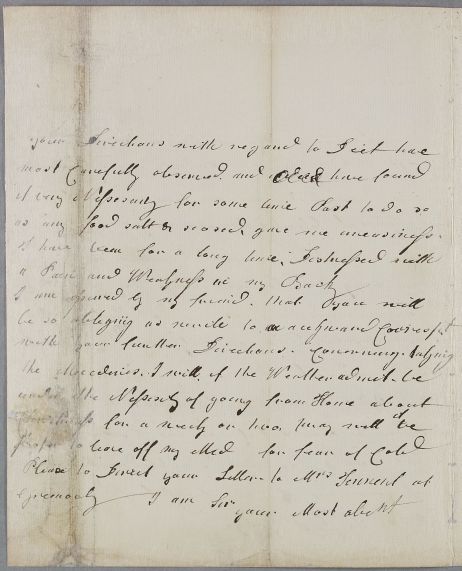 your Directions with regard to Diet have
most Carefully observed. and indeed have found
it very Nessesary for some time Past to do so
as any food salt & seasoned, gave me uneasiness.
I have been for a long time, Distressed with
a Pain and Weakness in my Back
I am assured by my freind, that you will
be so obliging as to a awkward Correspt
with your further Directions. Concerning.
the Meedecins. I will, if the Weather admit, be
under the Nessesety of going from Home about
Business for a week or two, may will it be
proper to leave off my Med for fear of Cold
Please to Direct your Letter to Mrs Tennent at
I am Sir
your Most obedt